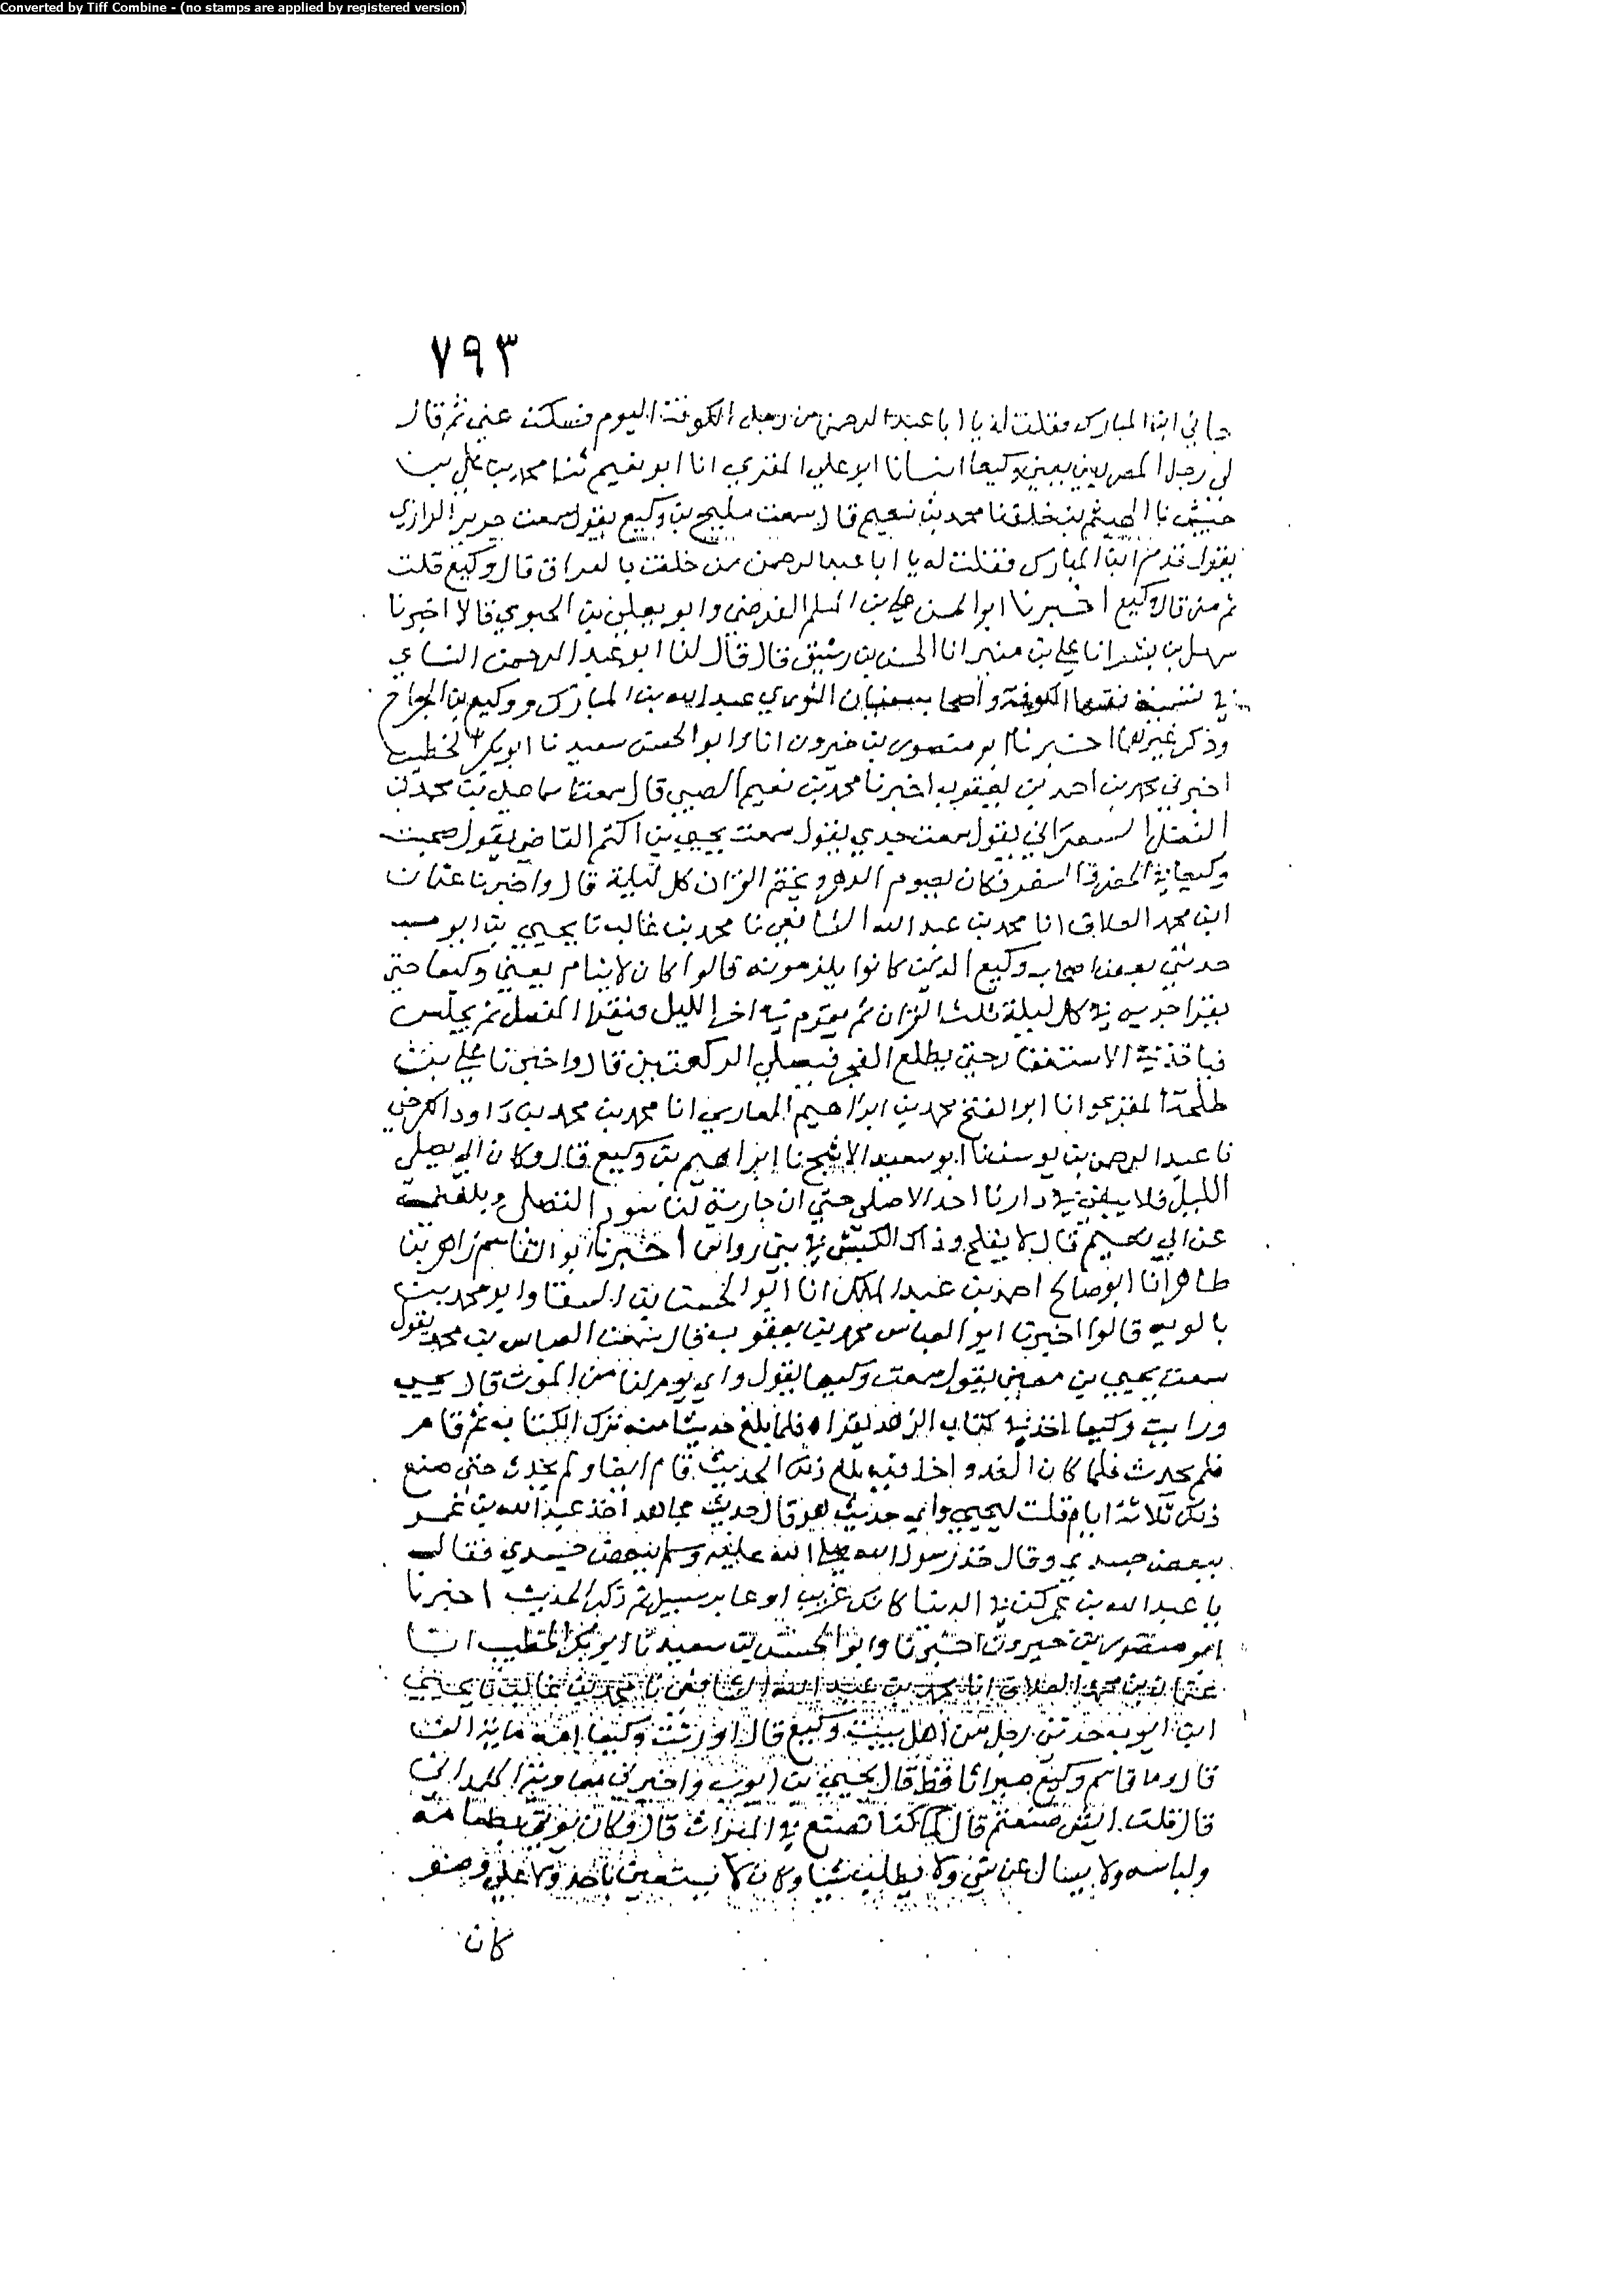 Converted by Tiff Combine - (no stamps are applied by registered version)
٧٩٣
جاني ابن المبارك فقلت له يا ابا عبد الرحمن من رجل الكوفة اليوم فسكت عني ثم قال
لي رجل المصرين يعني وكيعا انبانا ابو علي المقري انا ابو نعيم ثنا محمد بن علي بن
حبيش نا الهيثم بن خلف نا محمد بن نعيم قال سمعت مليح بن وكيع يقول سمعت جرير الرازي
يقول قدم ابن المبارك فقلت له يا ابا عبد الرحمن من خلفت بالعراق قال وكيع قلت
ثم من قال وكيع اخبرنا ابو الحسن علي بن المسلم الفرضي وابو يعلى بن الحبوبي قالا اخبرنا
سهل بن بشر انا علي بن منير انا الحسن بن رشيق قال قال لنا ابو عبد الرحمن النساي
في تسمية فقها الكوفة واصحاب سفيان الثوري عبد الله بن المبارك ووكيع بن الجراح
وذكر غيرهما اخبرنا ابو منصور بن خيرون انا وابو الحسن سعيد نا ابو بكر الخطيب
اخبرني محمد بن احمد بن يعقوب اخبرنا محمد بن نعيم الضبي قال سمعت اسماعيل بن محمد بن
الفضل الشعراني يقول سمعت جدي يقول سمعت يحيى بن اكثم القاضي يقول صحبت
وكيعا في الحضر والسفر فكان يصوم الدهر ويختم القران كل ليلة قال واخبرنا عثمان
ابن محمد العلاف انا محمد بن عبد الله الشافعي نا محمد بن غالب نا يحيى بن ايوب
حدثني بعض اصحاب وكيع الذين كانوا يلزمونه قالوا كان لا ينام يعني وكيعا حتى
يقرا جزءه في كل ليلة ثلث القران ثم يقوم في اخر الليل فيقرا المفصل ثم يجلس
فياخذ في الاستغفار حتى يطلع الفجر فيصلي الركعتين قال واخبرنا علي بن
طلحة المقري انا ابو الفتح محمد بن ابراهيم انا محمد بن محمد بن داود الكرخي
نا عبد الرحمن بن يوسف نا ابو سعيد الاشج نا ابراهيم بن وكيع قال وكان ابي يصلي
الليل فلا يبقى في دارنا احد الا صلى حتى ان جارية لنا سودا لتصلي وبلغني
عن ابي نعيم قال لا يفلح وذاك الكبش في بني رواس اخبرنا ابو القاسم زاهر بن
طاهر انا ابو صالح احمد بن عبد الملك انا ابو الحسن بن السقا وابو محمد بن
بالويه قالوا اخبرنا ابو العباس محمد بن يعقوب قال سمعت العباس بن محمد يقول
سمعت يحيى بن معين يقول سمعت وكيعا يقول واي يوم لنا من الموت قال يحيى
ورايت وكيعا اخذ في كتاب الزهد يقراه فلما بلغ حديثا منه ترك الكتاب ثم قام
فلم يحدث فلما كان الغد واخذ فيه بلغ ذلك الحديث قام ايضا ولم يحدث حتى صنع
ذلك ثلاثة ايام قلت ليحيى واي حديث هو قال حديث مجاهد اخذ عبد الله بن عمر
ببعض جسدي وقال اخذ رسول الله صلى الله عليه وسلم ببعض جسدي فقال
يا عبد الله بن عمر كن في الدنيا كانك غريب او عابر سبيل ثم ذكر الحديث اخبرنا
ابو منصور بن خيرون اخبرنا وابو الحسن بن سعيد نا ابو بكر الخطيب انا
عثمان بن محمد العلاف انا محمد بن عبد الله الشافعي نا محمد بن غالب نا يحيى
ابن ايوب حدثني رجل من اهل بيت وكيع قال اورثت وكيعا امه ماية الف
قال وما قاسم وكيع ميراثا قط قال يحيى بن ايوب واخبرني معاوية الهمداني
قال قلت ايش صنعتم قال كما كنا نصنع في الميراث قال وكان يوتى بطعامه
ولباسه ولا يسال عن شي ولا يطلب شيا وكان لا يستعين باحد ولا على وضو
كان